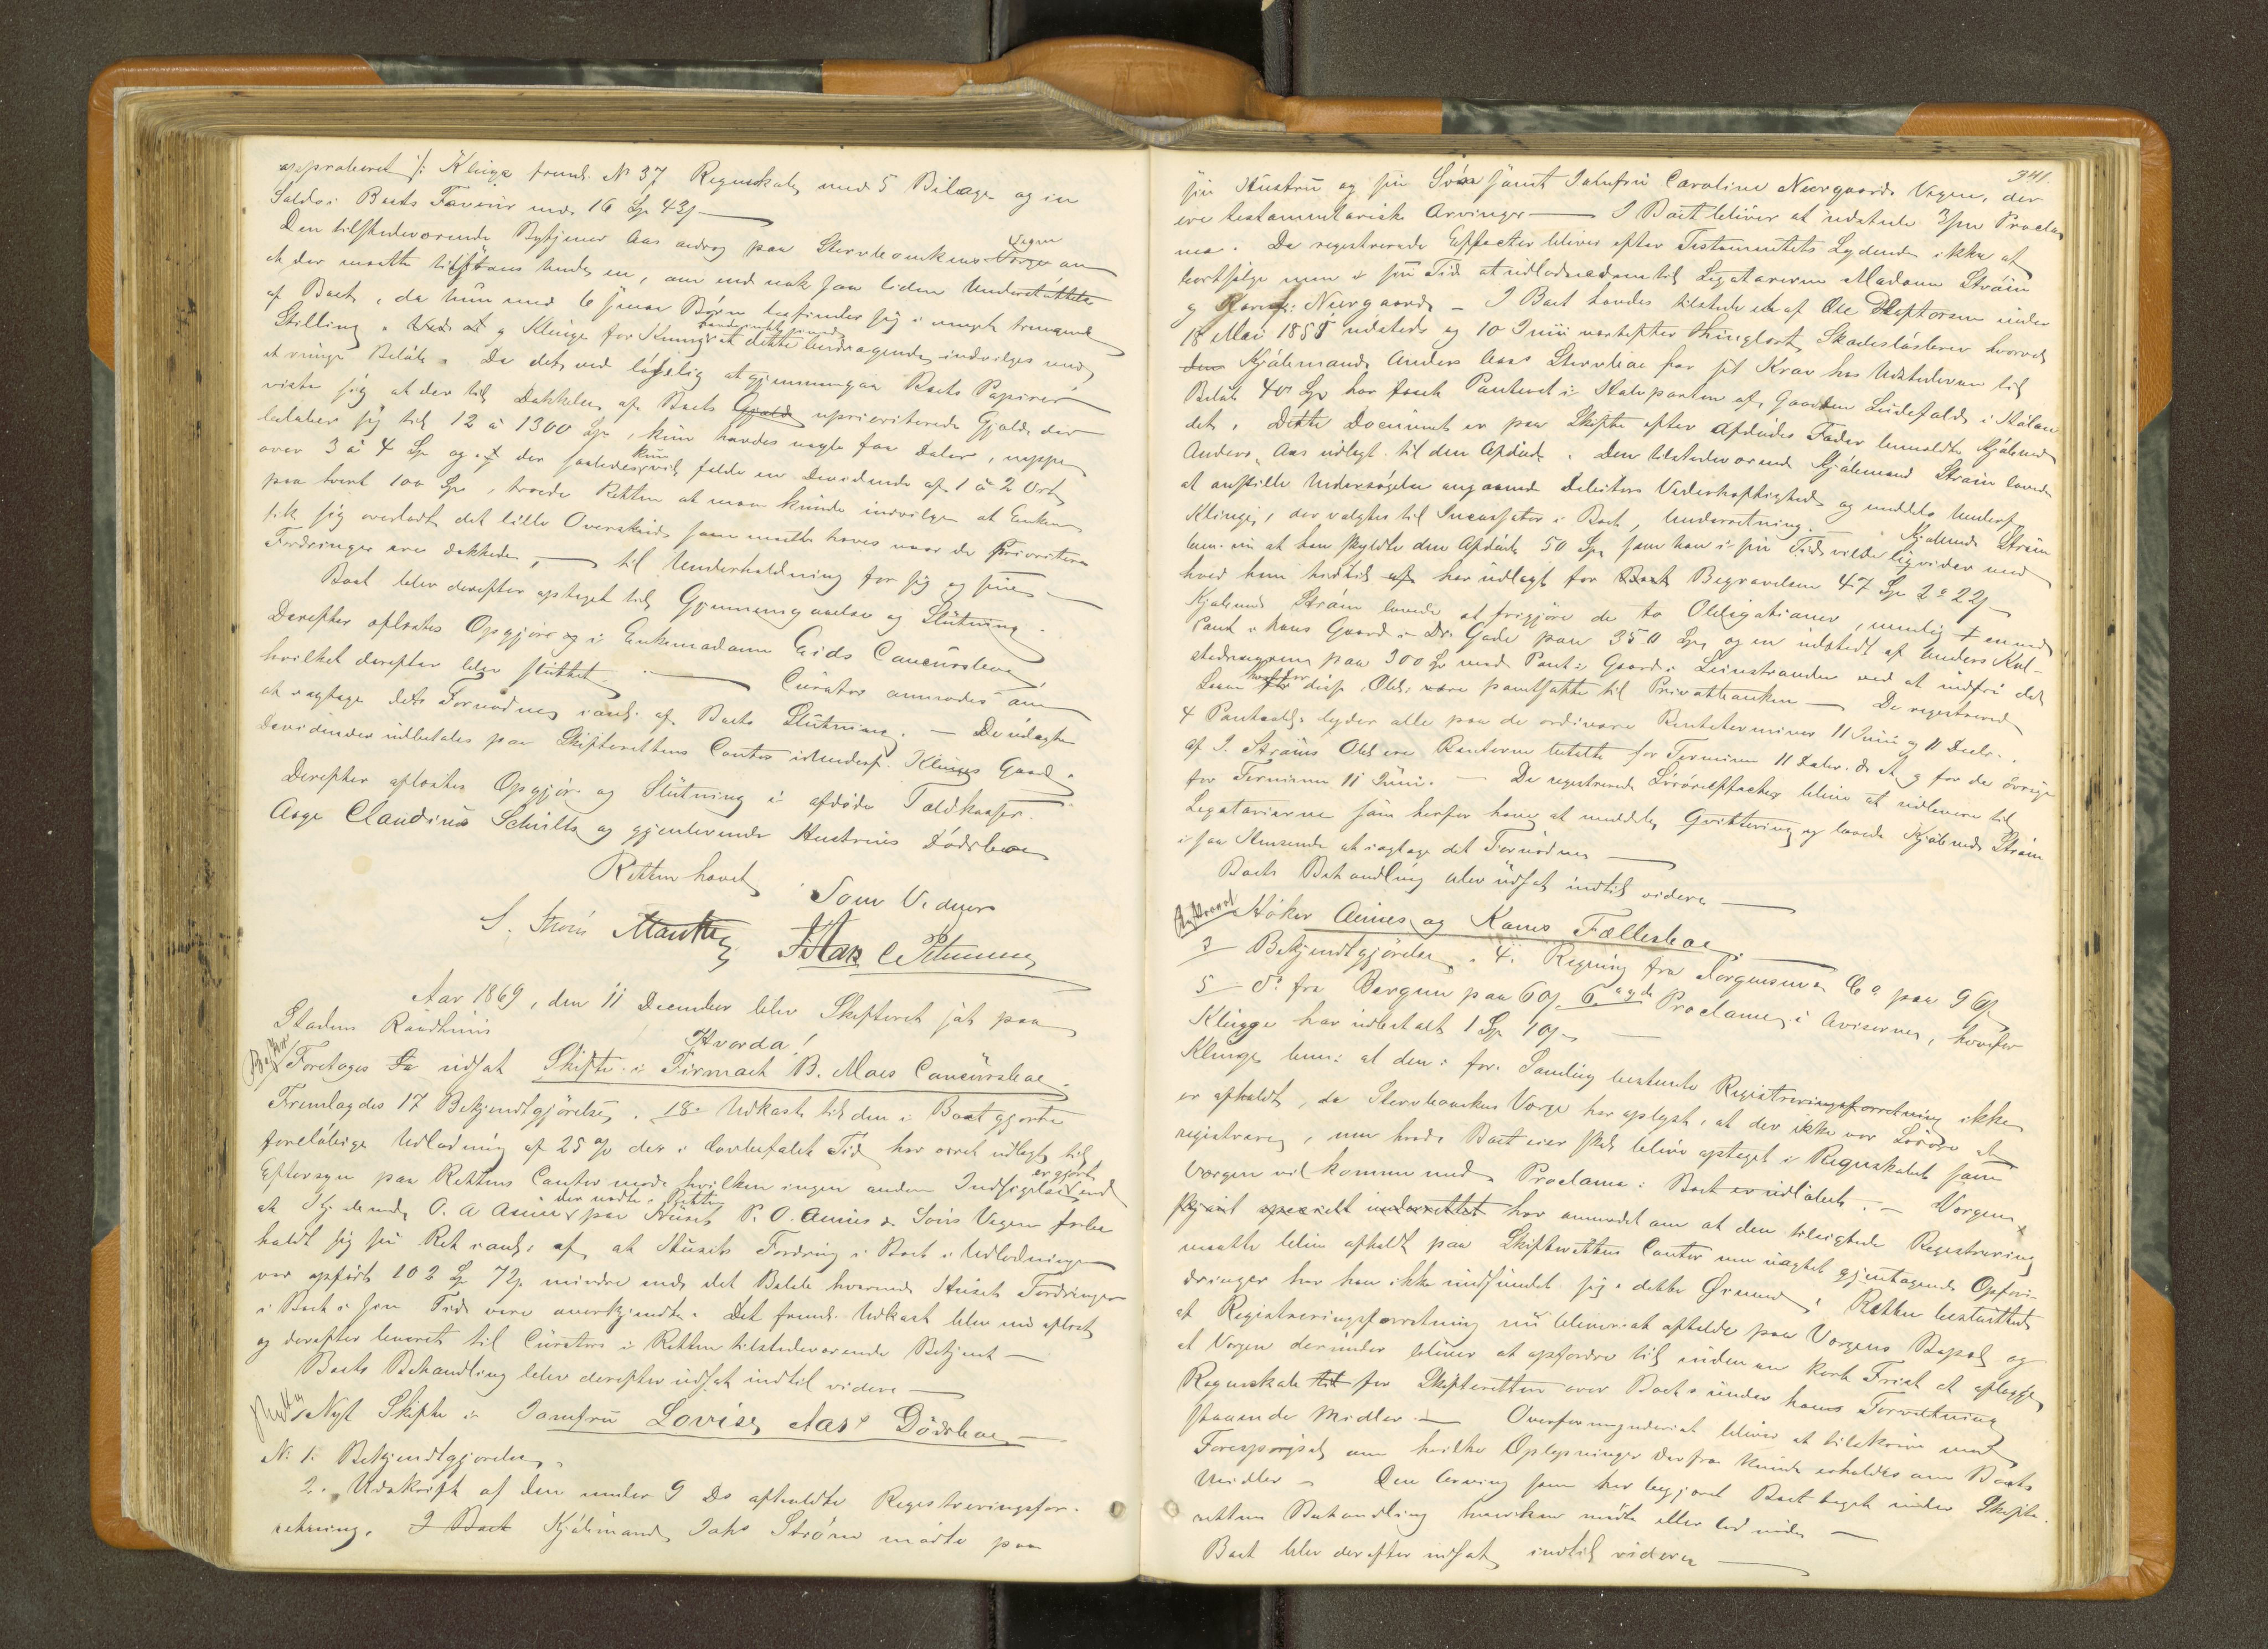 approberet /: Klinge freml. No 37 Regnskab, med 5 Bilage og en
Saldo i Boets Faveur med 16 Sp 43 s —
Den tilstedeværende Bytjener Aas androg paa Stervboenkens Vegne om
at der maatte tilstaaes hende en, om end nok saa liden Understøttelse
af Boet, da hun med 6 smaa Børn befinder sig i meget trængende
Stilling. og Klinge for Kunng at dette Andragende indvilges med
et ringe Beløb. Da det, ved løselig at gjennemgaa Boets Papirer
viste sig at der til Dækkelse af Boets Gjæld uprioriterede Gjæld, der
beløber sig til 12 à 1300 Sp, kun havdes nogle faa Daler, neppe
over 3 à 4 Sp og at der saaledes kun vil falde en Dividende af 1 à 2 Ort
paa hvert 100 Sp, troede Retten at man kunde indvilge at Enken
fik sig overladt det lille Overskud, som maatte haves naar de Prioritere
Fordringer ere dækkede, — til Underholdning for sig og sine —
Boet blev derefter optaget til Gjennemgaaelse og Slutning.
Derefter oplæstes Opgjør og i Enkemadame Eids Concursboe,
hvilket derefter blev sluttet. — Curator anmodes om
at iagttage dets Fornødne i anl. af Boets Slutning. — De udlagte
Dividender udbetales paa Skifterettens Contor i Underf. Klinges Gaard.
Derefter oplæstes Opgjør og Slutning i afdøde Toldkasser.
Aage Claudius Schults og gjenlevende Hustrues Dødsboe
Retten hævet
Som Vidner
S. Strøm
Aar 1869, den 11 December blev Skifteret sat paa
Stadens Raadhuus
Hvorda!
Foretoges udsat Skifte i Firmaet B. Moes Concursboe.
Fremlagdes 17 Bekjendtgjørelse, 18. Udkast til den i Boet gjorte
foreløbige Udlodning af 25 % der i lovbefalet Tid har været udlagt til
Eftersyn paa Rettens Contor mode hvilken ingen anden Indsigelse er gjort end
at Kjøbmd, O. A Aune der mødte i Retten paa Huset P. O. Aunes & Søns Vegne forbe
holdt sig sin Ret i anl: af, at Husets Fordring i Boet i Udlodningen
var opført 102 Sp 72 s mindre end det Beløb hvormed Husets Fordringer
i Boet i sin Tid vare anerkjendte. Det freml. Udkast blev nu oplæst
og derefter leveret til Curators i Retten tilstedeværende Betjent —
Boets Behandling blev derefter udsat indtil videre —
Nyt Skifte i Jomfru Lovise Aas's Dødsboe —
No 1. Bekjendtgjørelse,
2. Udskrift af den under 9 Ds afholdte Registreringsfor-
retning. I Boet Kjøbmand Jahs Strøm mødte paa
341.
sin Hustru og sin Søn samt Jomfru Caroline Neergaards Vegne, der
ere testamentariske Arvinger — I Boet bliver at udstede 3/m Procla
ma. De registrerede Effecter bliver efter Testamentets Lydende ikke at
bortsælge men i sin Tid at udlodnes dem til Legatarerne Madame Strøm
og Neergaard — I Boet havdes tilstede en af Ole Ol under
18 Mai 1855 udstedt og 10 Juni næstefter thinglæst, Skadesløsbrev hvorved
den Kjøbmand Anders Aas's Stervboe for sit Krav hos Udstederen til
Beløb 40 Sp har faaet Panteret i Halvparten af, Gaarden Ludefald, i Hølan
det. Dette Document er paa Skifte efter Afdødes Fader bemeldte Kjøbmd
Anders Aas udlagt til den Afdøde. Den tilstedeværende Kjøbmand Strøm lovede
at anstille Undersøgelse angaaende Debitors Vederhæftighed og meddele Underf
Klinge, der valgtes til Incassator i Boet, Underretning. — Kjøbmd Strøm
bem. nu at han skyldte den Afdøde 50 Sp, som han i sin Tid vilde liqvidere med
hvad han hidtil af har udlagt for Boet Begravelsen 47 Sp 2 o 22 s —
Kjøbmd Strøm lovede at frigjøre de to Obligationer, nemlig en med
Pant i hans Gaard i Dr. Gade paa 350 Sp, og en udstedt af Anders Kul-
paa 300 Sp med Pant i Gaard i Leirstranden ved at indfri det
Laan hvorfor disse Obl: vare pantsatte til Privatbanken — De registrered
4 Pantobl. lyder alle paa de ordinære Rentetermine 11 Juni og 11 Decbr.
af J. Strøms Obl ere Renterne betalte for Terminen 11 Debr. d. A. og for de øvrige
for Terminen 11 Juni. — De registrerede Løsøreeffecter blive at udlevere til
Legatarierne som herfor have at meddele Qvittering og lovede Kjøbmd Strøm
i saa Henseende at iagttage det Fornødne —
Boets Behandling blev udsat indtil videre —
Høker Aunes og Kones Fællesboe
3 Bekjendtgjørelse, 4. Regning fra Jørgensen & Co paa 96 s
5 do fra Bergum paa 60 s 6. Proclama i Aviserne, hvorfor
Klingge har udbetalt 1 Sp 10 s —
Klinge bem: at den i for. Samling bestemte Registreringsforretning ikke
er afholdt, da Stervboenkens Værge har oplyst, at der ikke var Løsøre at
registrere, men hvad Boet eier skal blive optaget i Regnskabet som
Værgen vil komme med. Proclama i Boet er udløbet. — Værgen,
skjønt specielt underrettet har anmodet om at den tilsigtede Registrering
maatte blive afholdt paa Skifterettens Contor men uagtet gjentagende Opfor-
dringer har han ikke indfundet sig i dette Øiemed. Retten besluttede
at Registreringsforretning nu bliver at afholde paa Værgens Bopæl, og
at Værgen derunder bliver at opfordre til inden en kort Frist at aflægge
Regnskab til for Skifteretten over Boets under hans Forvaltning
staaende Midler. — Overformynderiet bliver at tilskrive med
Forespørgsel, om hvilke Oplysninger derfra kunde erholdes om Boets
Midler — Den Arving som har begjæret Boet taget under Skifte-
rettens Behandling hverken mødte eller lod møde —
Boet blev derefter udsat indtil videre —